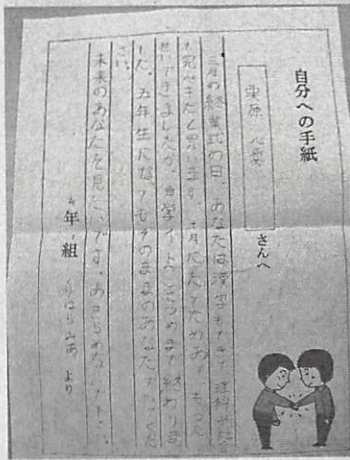 自分への手紙
栗原 心愛 さんへ
三月の終業式の日。あなたは漢字もできて、理科や社会
も完ぺきだと思います。十月にたてためあて、もう
せいできましたか。自学ノートどこまでで終わりま
した。五年生になってもそのままのあなたでいてくだ
さい。
未来のあなたを見たいです。あきらめないで下さい。
4年1組 くりはらみあ より